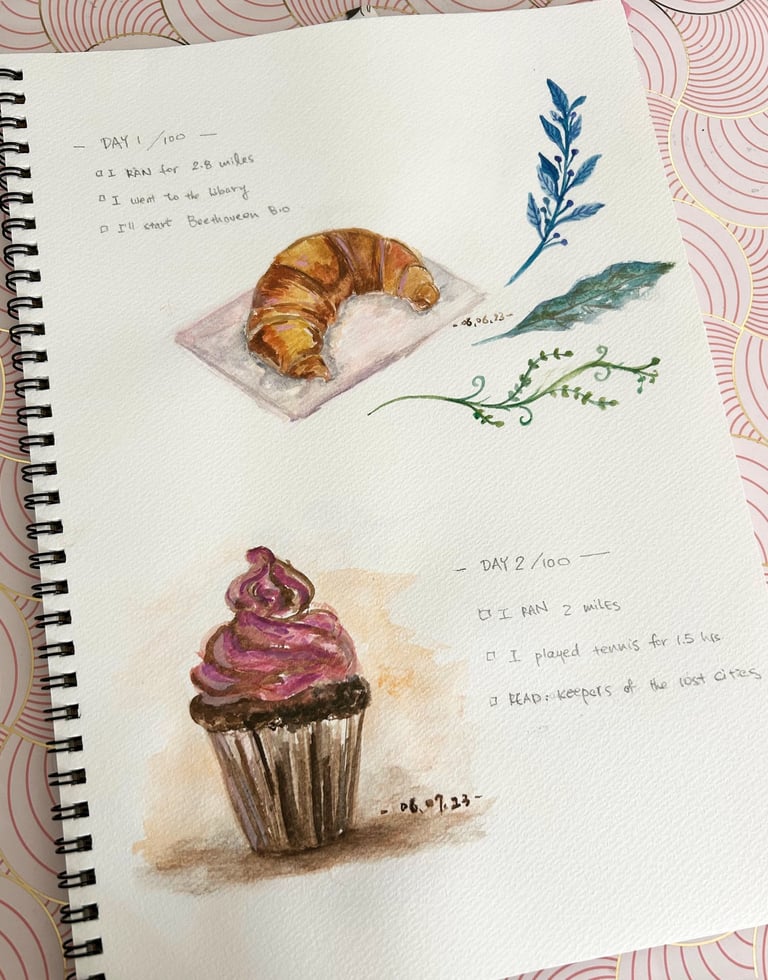 - DAY 1/100 -
□ I RAN for 2.8 miles
□ I went to the libary
□ I'll start Beethoveen Bio
- 06.06.23 -
- DAY 2/100 -
□ I RAN 2 milEs
□ I played tennis for 1.5 hrs.
□ READ: Keepers of the lost cities
- 06.07.23 -